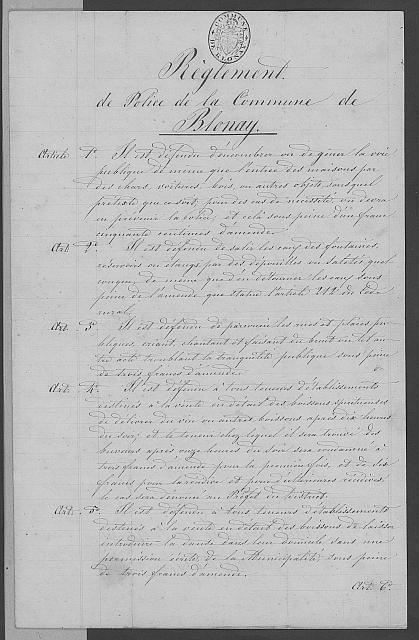 COMMUNE DE BLONAY
Règlement.
de Police de la Commune de
Blonay.
Article 1er Il est défendu d'encombrer ou de gêner la voie
publique de même que l'entrée des maisons par
des chars, voitures, bois, ou autres objets, sous quel
prétexte que ce soit, pour des cas de nécessité, on devra
en prévenir la police, et celà sous peine d'un franc
cinquante centimes d'amende.
Art. 2. Il est défendu de salir les eaux des fontaines,
réservoirs ou étangs par des dépouilles ou saletés quel
conque, de même que d'en détourner les eaux sous
peine de l'amende que statue l'article 212 du Code
rural.
Art. 3. Il est défendu de parcourir les rues et places pu-
bliques, criant, chantant et faisant du bruit ou tel au-
tre acte troublant la tranquilité publique sous peine
de trois francs d'amende.
Art. 4. Il est défendu à tous teneurs d'établissements
destinés à la vente en détail des boissons spiritueuses
de délivrer du vin ou autres boissons après dix heures
du soir, et le teneur chez lequel il sera trouvé des
buveurs après onze heures du soir sera condamné à
trois francs d'amende pour la première fois, et de six
francs pour la récidive et pour d'ultérieures récidives
le cas sera dénoncé au Préfet du District.
Art. 5. Il est défendu à tous teneurs d'établissements
destinés à la vente en détail des boissons de laisser
introduire la danse dans leur domicile sans une
permission écrite de la Municipalité, sous peine
de trois francs d'amende.
Art. 6.